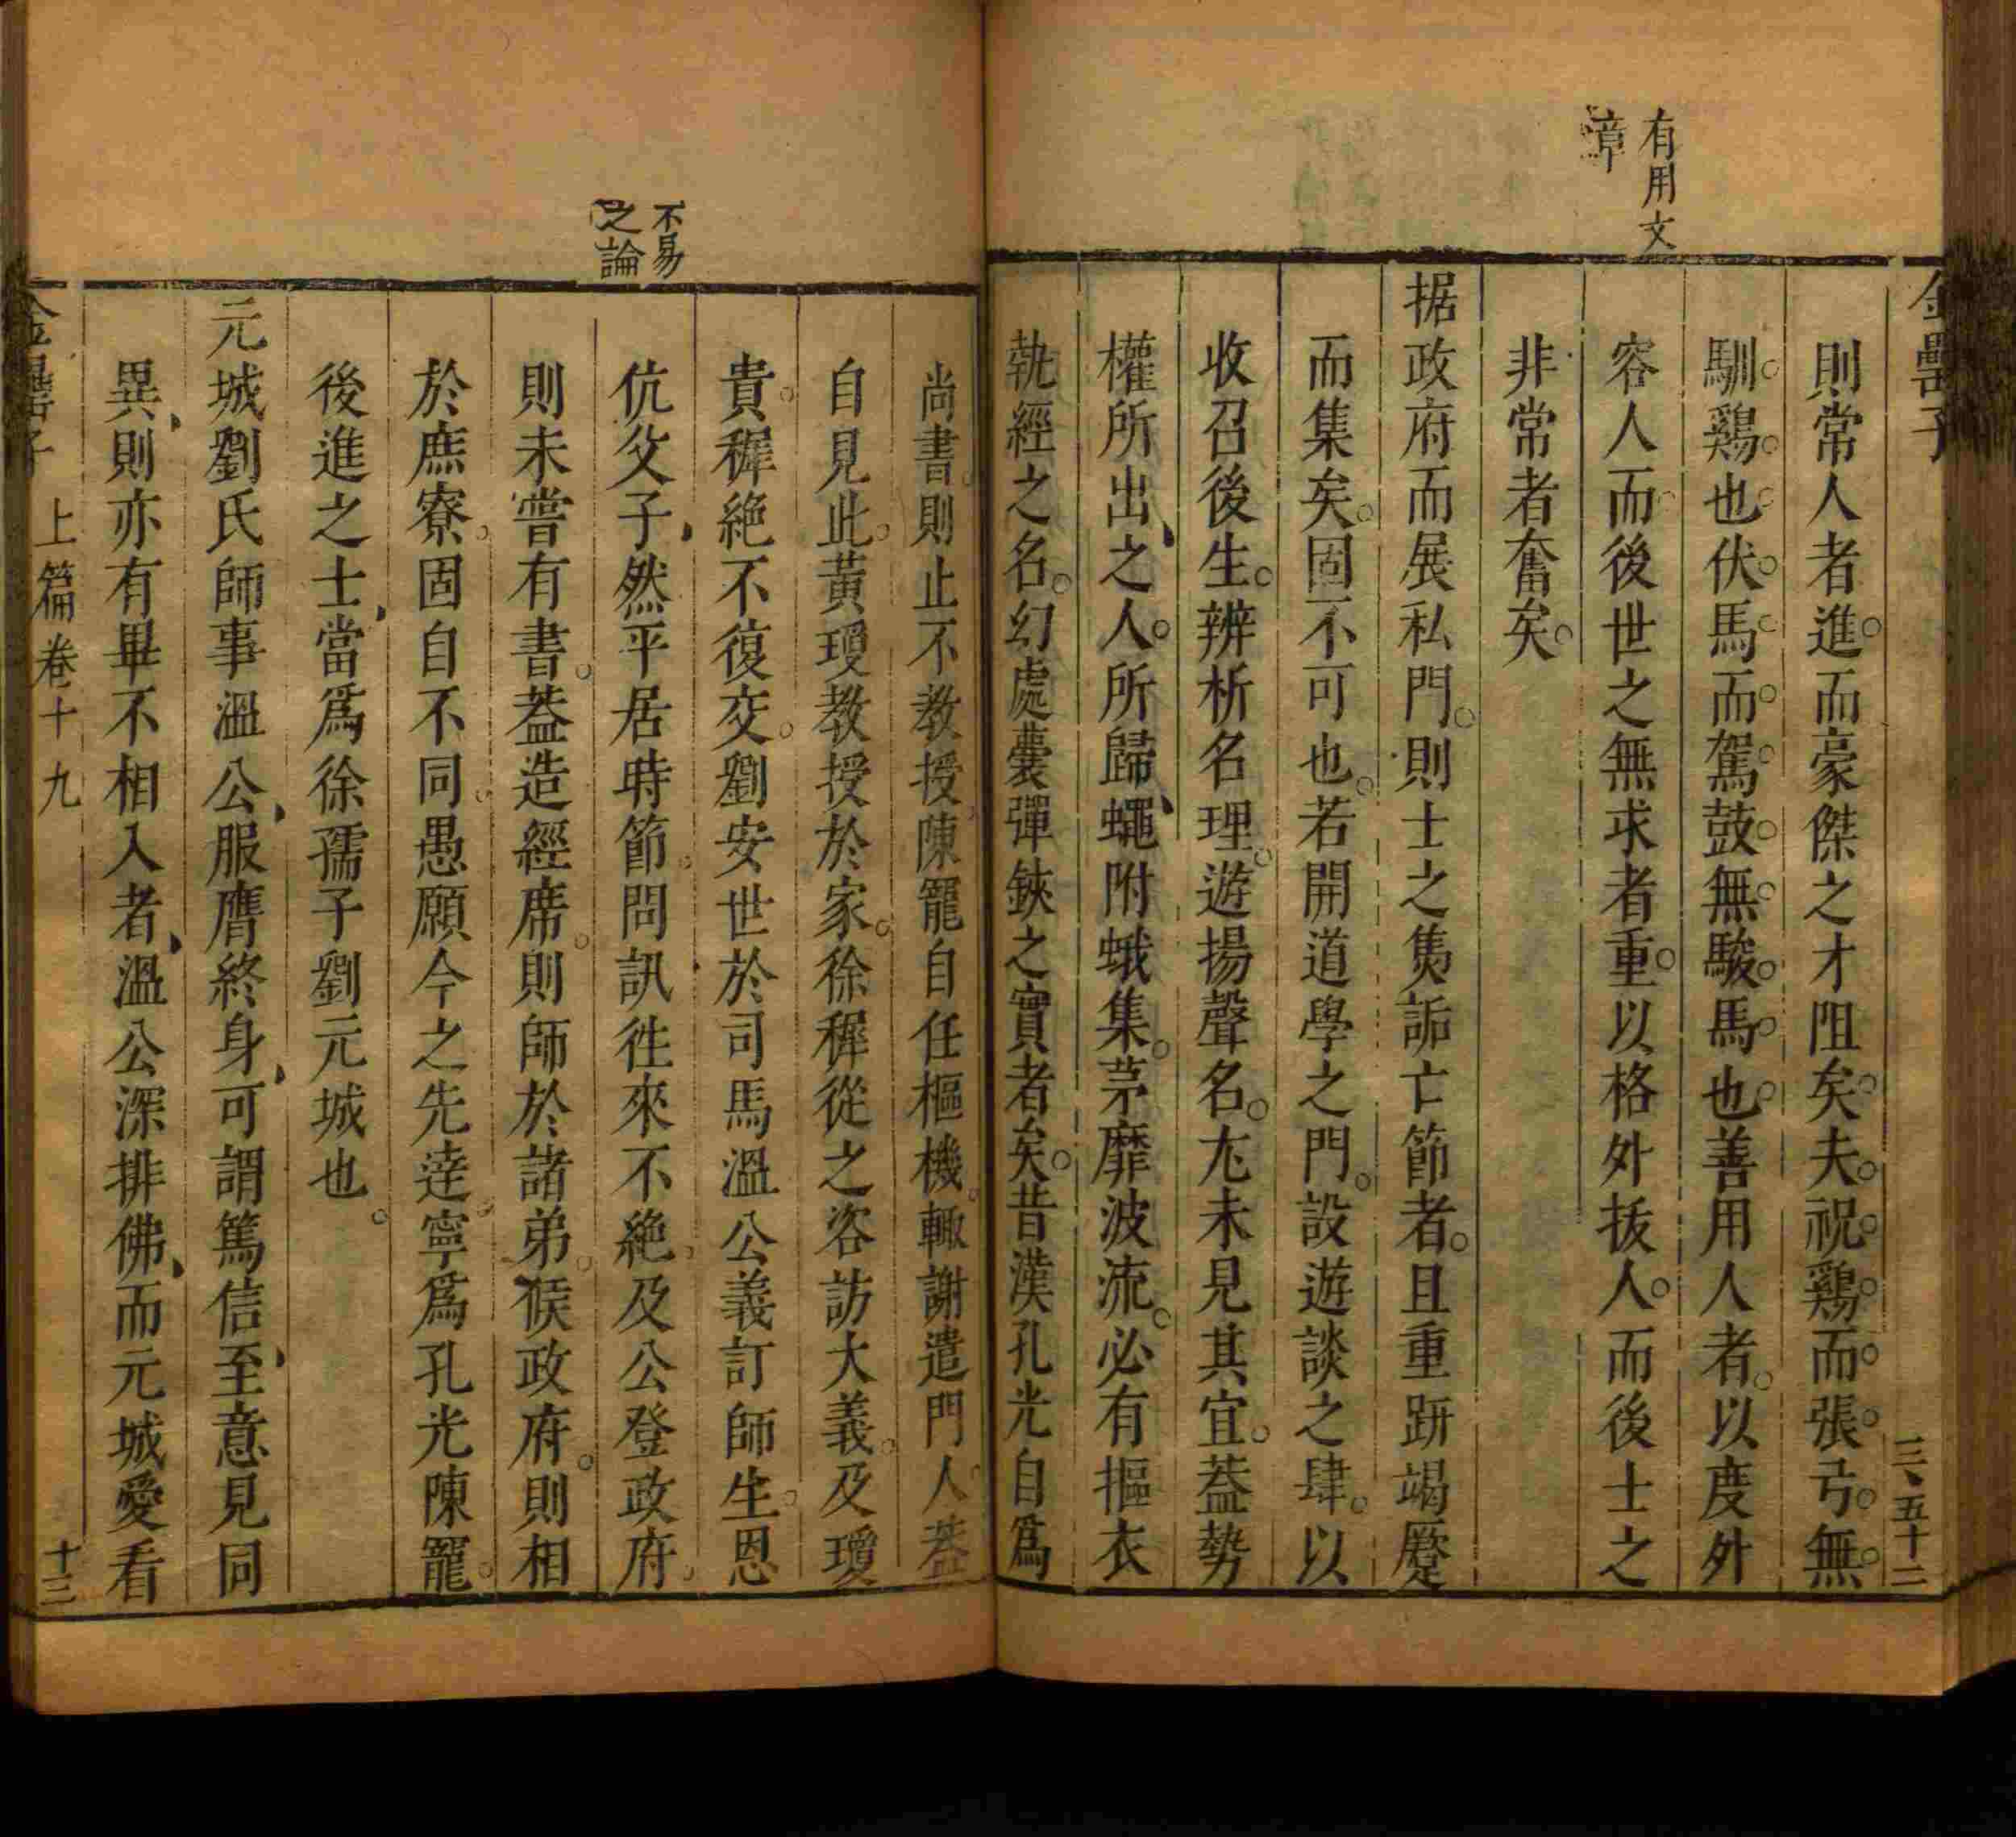 金罍子
三、五十二
有用文
章
則常人者進而豪傑之才阻矣夫祝鷄而張弓無
馴鷄也伏馬而駕鼓無駿馬也善用人者以度外
容人而後世之無求者重以格外拔人而後士之
非常者奮矣
据政府而展私門則士之奊詬亡節者且重趼竭蹷
而集矣固不可也若開道學之門設遊談之肆以
收召後生辨析名理遊揚聲名尤未見其宜葢勢
權所出之人所歸蠅附蛾集茅靡波流必有摳衣
執經之名幻處囊彈鋏之實者矣昔漢孔光自爲
尚書則止不教授陳寵自任樞機輙謝遣門人葢
自見此黃瓊教授於家徐穉從之咨訪大義及瓊
貴穉絶不復交劉安世於司馬溫公義訂師生恩
伉父子然平居時節問訊徃來不絶及公登政府
則未嘗有書葢造經席則師於諸弟候政府則相
於庶寮固自不同愚願今之先逹寧爲孔光陳寵
後進之士當爲徐孺子劉元城也
元城劉氏師事溫公服膺終身可謂篤信至意見同
異則亦有畢不相入者溫公深排佛而元城愛看
不易
之論
金罍子
上篇卷十九
十三